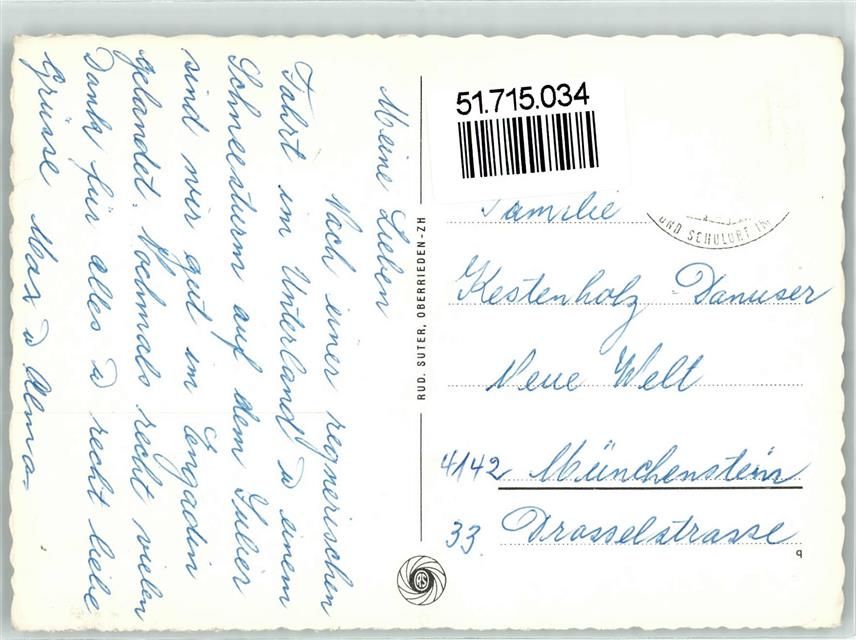 Meine Lieben
Nach einer regnerischen
Fahrt im Unterland u einem
Schneesturm auf dem Julier
sind wir gut im Engadin
gelandet. Nochmals recht vielen
Dank für alles u recht liebe
Grüsse Max u Alma
RUD. SUTER, OBERRIEDEN-ZH
51.715.034
UND SCHULORT
Familie
Kestenholz-Danuser
Neue Welt
4142 Münchenstein
33. Drosselstrasse
q
RS